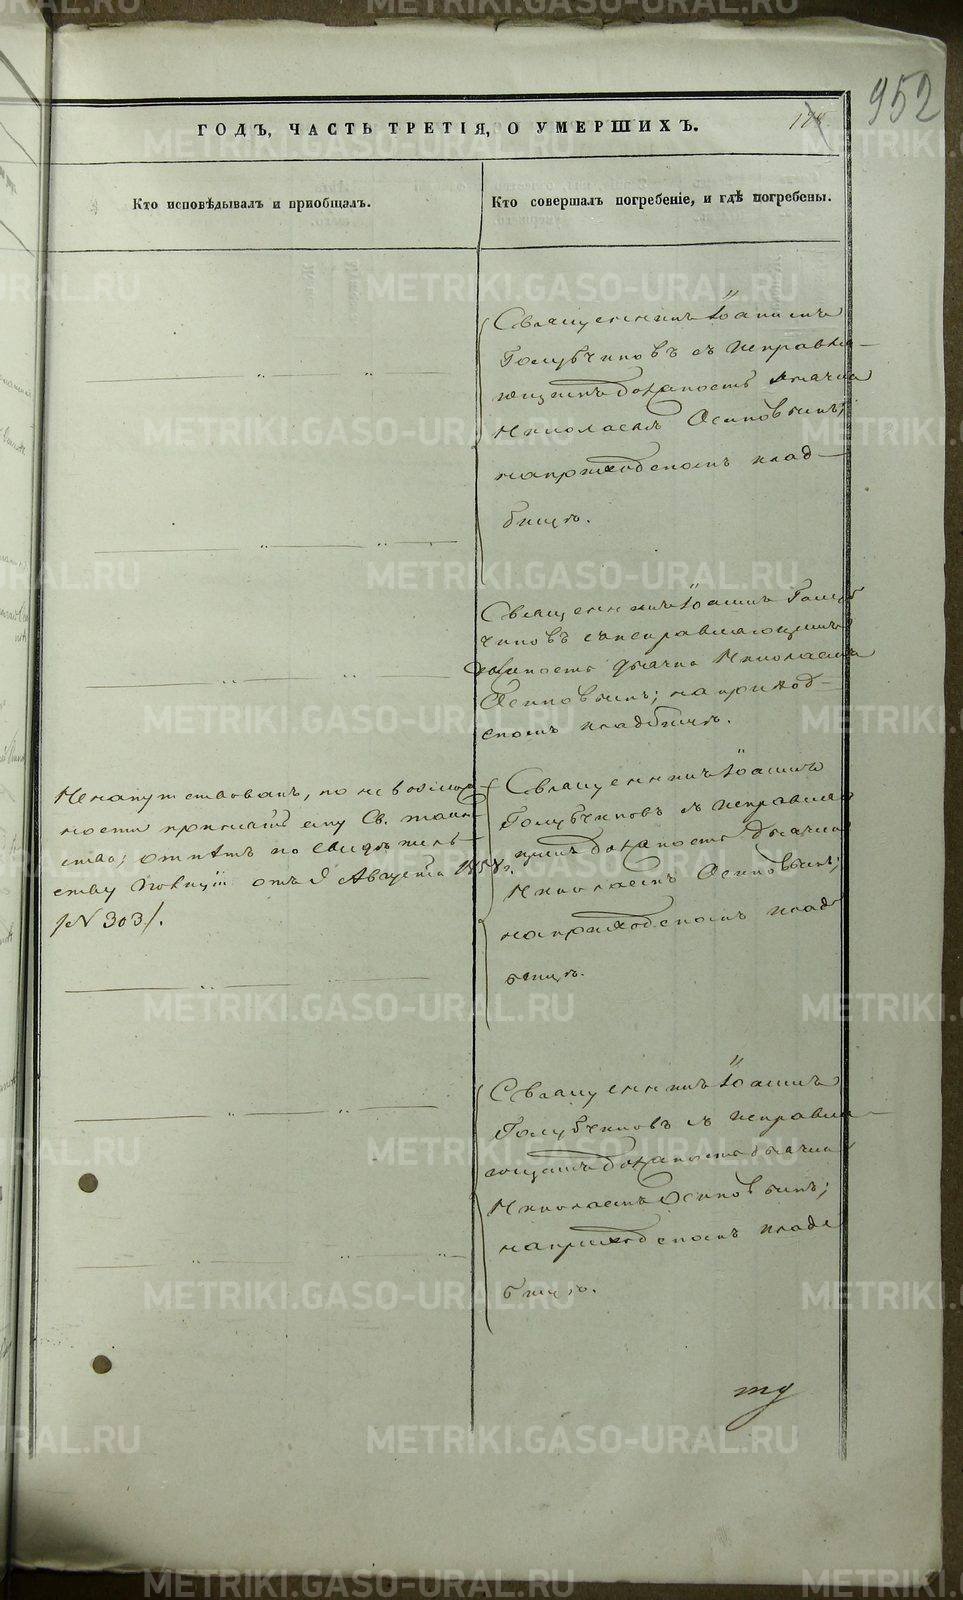 952
ГОДЪ, ЧАСТЬ ТРЕТІЯ, О УМЕРШИХЪ.
Кто исповѣдывалъ и пріобщалъ.
Кто совершалъ погребеніе, и гдѣ погребены.
Священникъ Іоаннъ
Голубчиковъ съ исправля-
ющимъ должность дьячка
Николаемъ Осиповымъ;
на приходскомъ клад-
бищѣ.
Священникъ Іоаннъ Голуб
чиковъ съ исправляющимъ
должность дьячка Николаемъ
Осиповымъ; на приход-
скомъ кладбищѣ.
Не напутствованъ, по невозмож-
ности принять ему Св. таин-
ство; отпѣтъ по свидѣтель-
ству отъ Августа 1858 г.
/№ 303/.
Священникъ Іоаннъ
Голубчиковъ съ исправляю
щимъ должность дьячка
Николаемъ Осиповымъ;
на приходскомъ клад
бищѣ.
Священникъ Іоаннъ
Голубчиковъ съ исправля-
ющимъ должность дьячка
Николаемъ Осиповымъ;
на приходскомъ клад
бищѣ.
METRIKI.GASO-URAL.RU